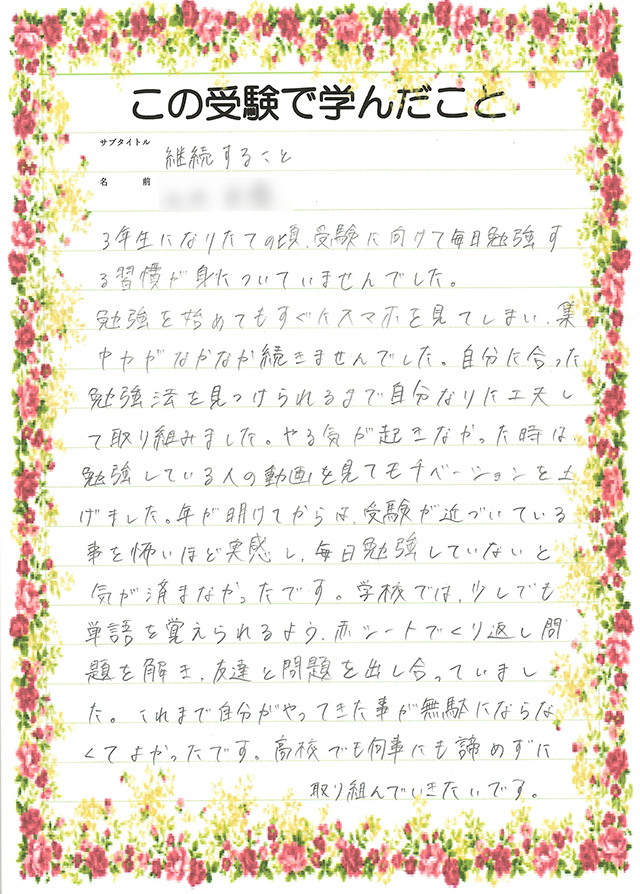 この受験で学んだこと
サブタイトル 継続すること
名前
3年生になりたての頃、受験に向けて毎日勉強す
る習慣が身についていませんでした。
勉強を始めてもすぐにスマホを見てしまい、集
中力がなかなか続きませんでした。自分に合った
勉強法を見つけられるまで自分なりに工夫し
て取り組みました。やる気が起きなかった時は
勉強している人の動画を見てモチベーションを上
げました。年が明けてからは、受験が近づいている
事を怖いほど実感し、毎日勉強していないと
気が済まなかったです。学校では、少しでも
単語を覚えられるよう、赤シートでくり返し問
題を解き、友達と問題を出し合っていまし
た。これまで自分がやってきた事が無駄にならな
くてよかったです。高校でも何事にも諦めずに
取り組んでいきたいです。